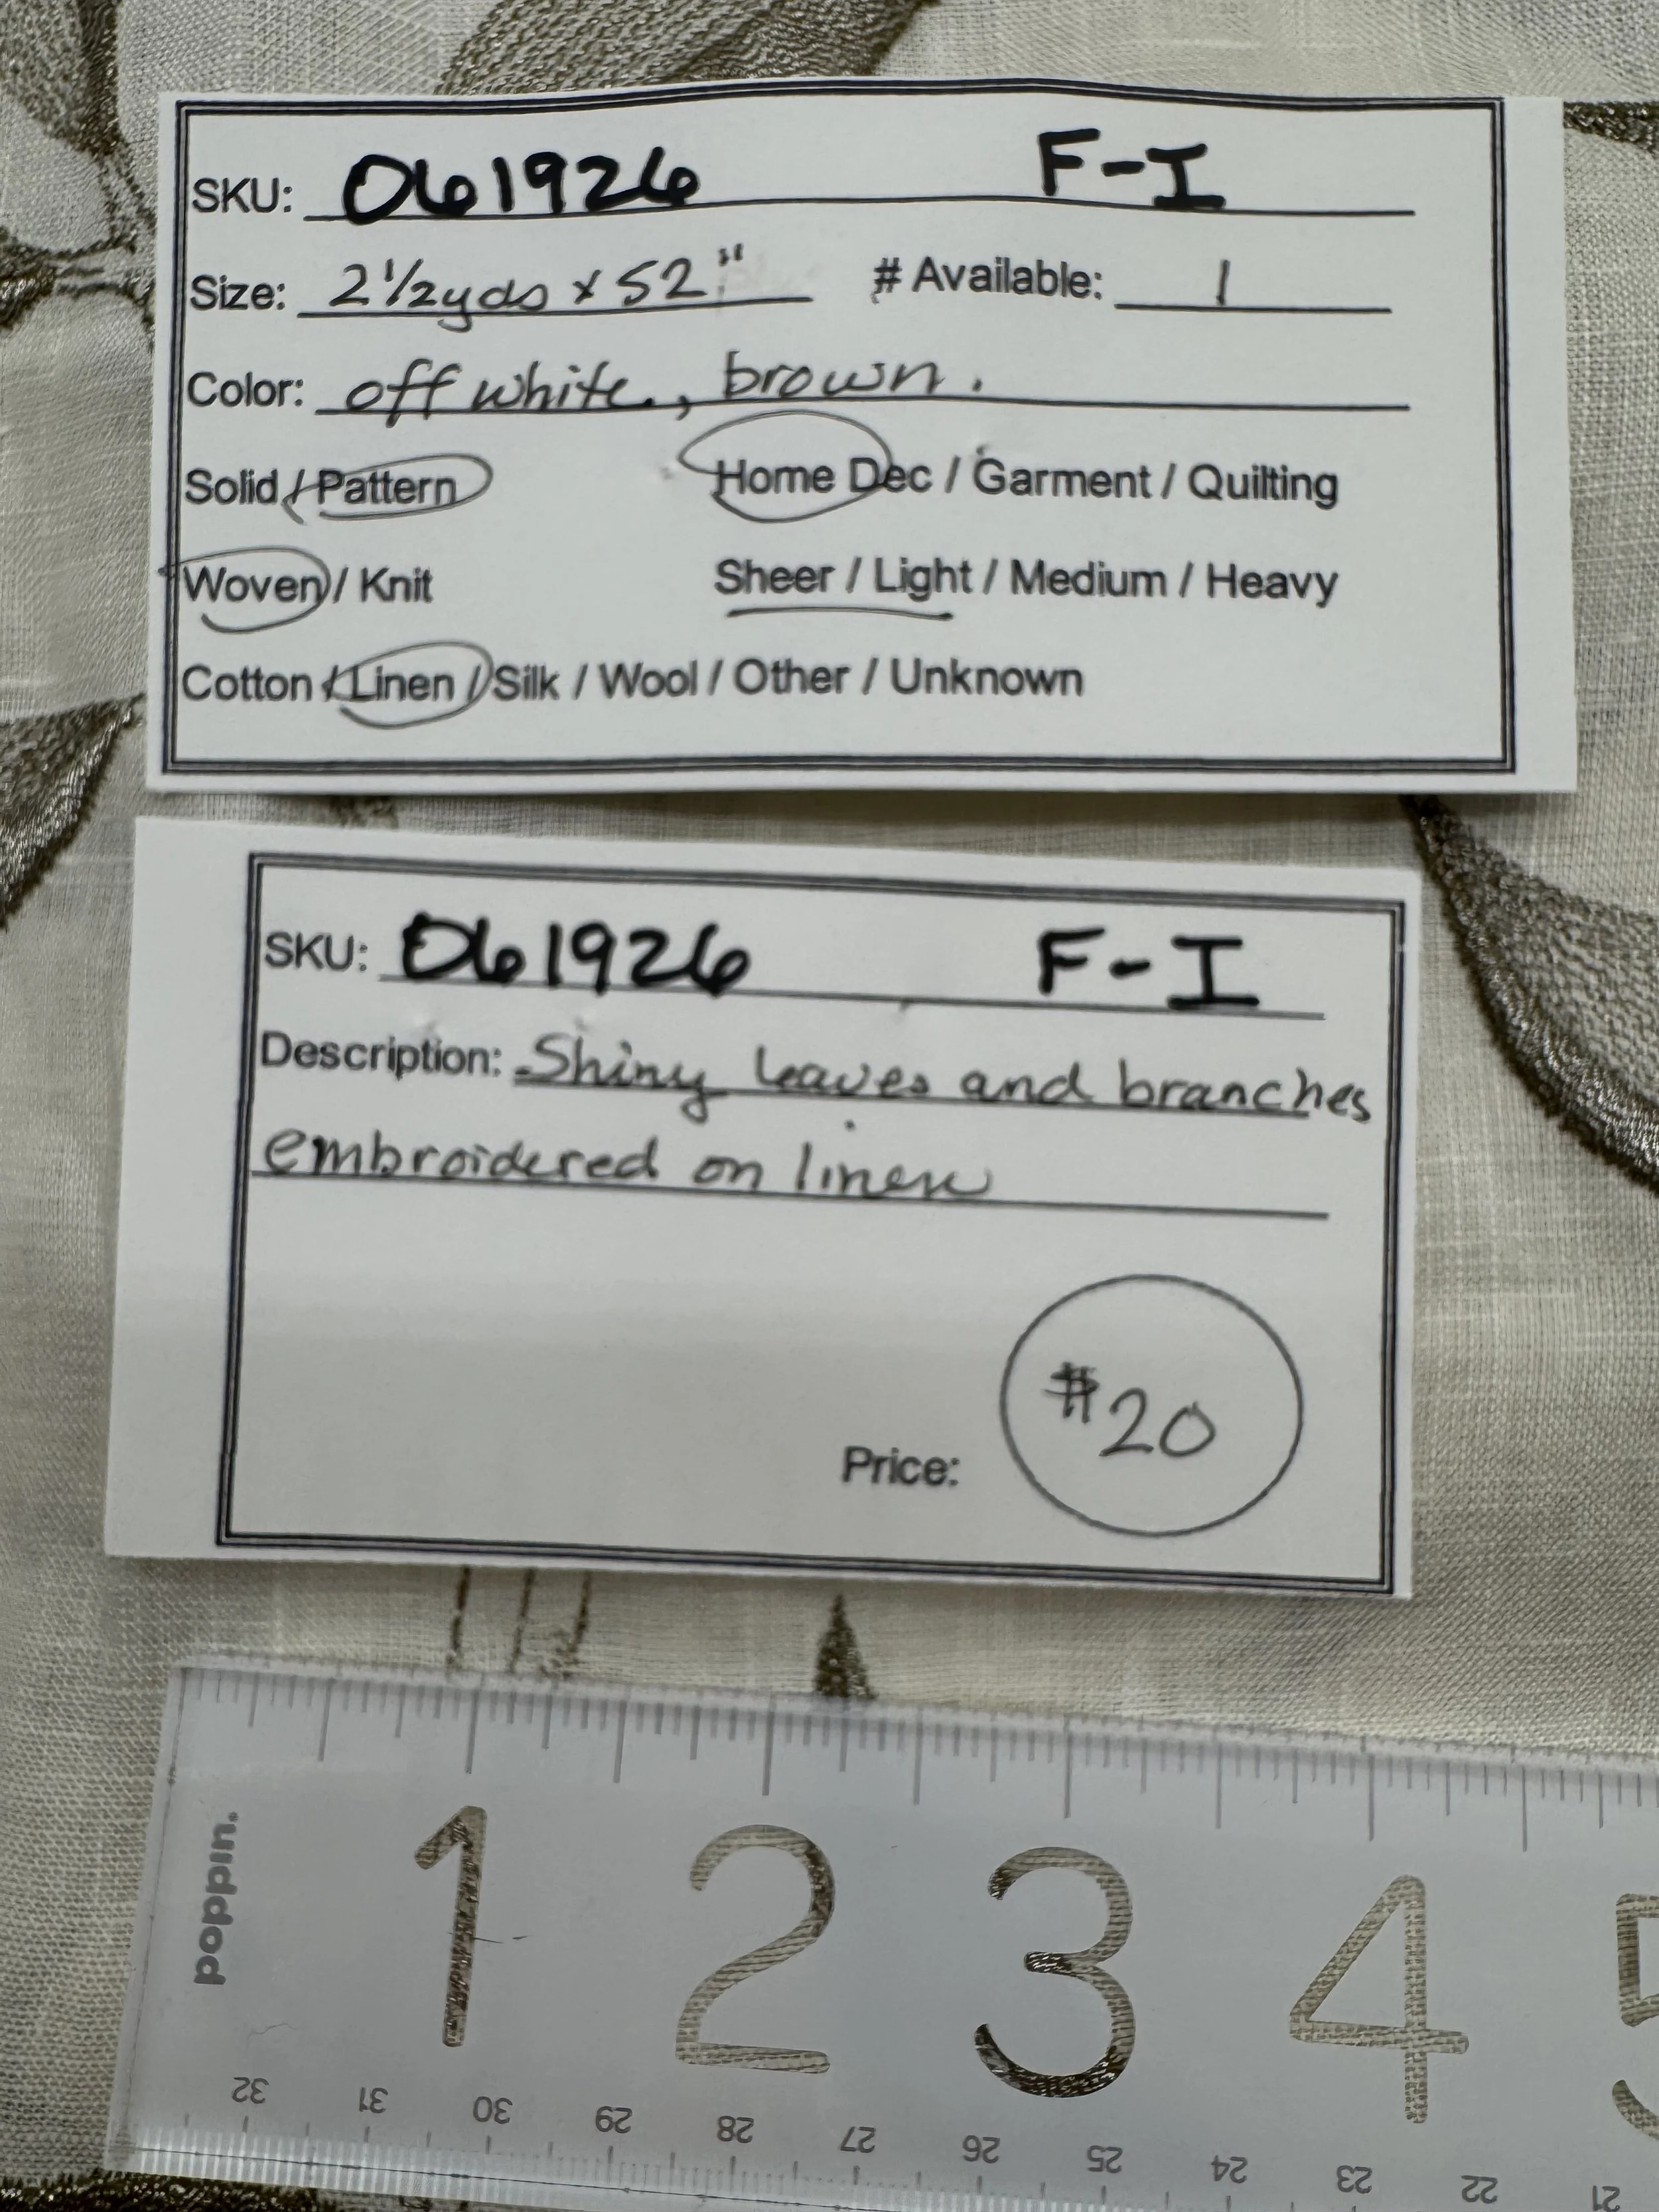 SKU: 061926 F-I
Size: 2 1/2 yds x 52" # Available: 1
Color: off white, brown.
Solid / Pattern Home Dec / Garment / Quilting
Woven / Knit Sheer / Light / Medium / Heavy
Cotton / Linen / Silk / Wool / Other / Unknown
SKU: 061926 F-I
Description: Shiny leaves and branches
embroidered on linen
Price: $20
poppin.
1 2 3 4 5
32 31 30 29 28 27 26 25 24 23 22 21